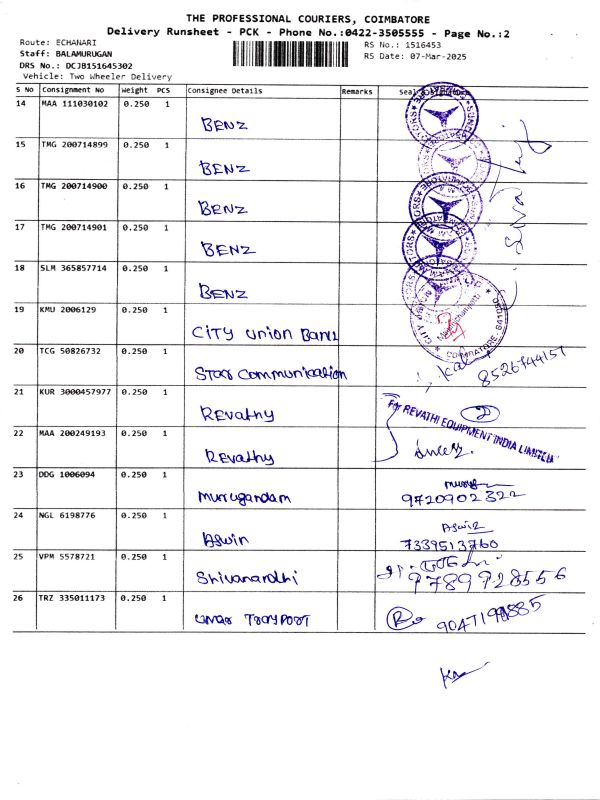 THE PROFESSIONAL COURIERS, COIMBATORE
Delivery Runsheet - PCK - Phone No.:0422-3505555 - Page No.:2
Route: ECHANARI
RS No.: 1516453
Staff: BALAMURUGAN
RS Date: 07-Mar-2025
DRS No.: DCJB151645302
Vehicle: Two Wheeler Delivery
S No Consignment No Weight PCS Consignee Details Remarks
14 MAA 111030102 0.250 1
BENZ
15 TMG 200714899 0.250 1
BENZ
16 TMG 200714900 0.250 1
BENZ
17 TMG 200714901 0.250 1
BENZ
18 SLM 365857714 0.250 1
BENZ
19 KMU 2006129 0.250 1
CITY UNION BANK
20 TCG 50826732 0.250 1
Star Communication
8526744157
21 KUR 3000457977 0.250 1
REVathy
For REVATHI EQUIPMENT INDIA LIMITED
22 MAA 200249193 0.250 1
REVathy
23 DDG 1006094 0.250 1
Murugandam
9720902322
24 NGL 6198776 0.250 1
Aswin
7339513760
25 VPM 5578721 0.250 1
Shivanandhi
9789928556
26 TRZ 335011173 0.250 1